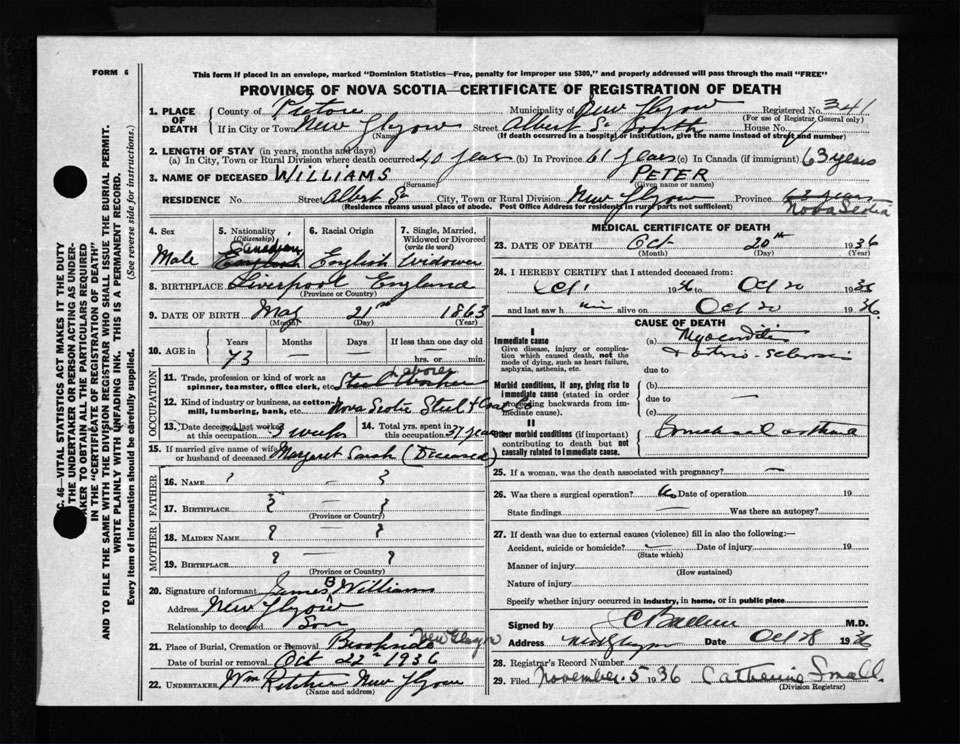 FORM 6
This form if placed in an envelope, marked "Dominion Statistics—Free, penalty for improper use $300," and properly addressed will pass through the mail "FREE"
PROVINCE OF NOVA SCOTIA—CERTIFICATE OF REGISTRATION OF DEATH
1. PLACE OF DEATH { County of Pictou Municipality of New Glasgow Registered No. 341
(For use of Registrar General only)
If in City or Town New Glasgow Street Albert St South House No.
(Name) (If death occurred in a hospital or institution, give the name instead of street and number)
2. LENGTH OF STAY (in years, months and days)
(a) In City, Town or Rural Division where death occurred 40 years (b) In Province 61 years (c) In Canada (if immigrant) 63 years
3. NAME OF DECEASED WILLIAMS PETER
(Surname) (Given name or names)
RESIDENCE No. Street Albert St City, Town or Rural Division New Glasgow Province 63 years Nova Scotia
(Residence means usual place of abode. Post Office Address for residents in rural parts not sufficient)
4. Sex 5. Nationality (Citizenship) 6. Racial Origin 7. Single, Married, Widowed or Divorced (write the word)
Male Canadian English English Widower
8. BIRTHPLACE Liverpool England
(Province or Country)
9. DATE OF BIRTH May 21st 1863
(Month) (Day) (Year)
10. AGE in Years Months Days If less than one day
73 — — hrs. or min.
OCCUPATION
11. Trade, profession or kind of work as spinner, teamster, office clerk, etc. Steel Worker
12. Kind of industry or business, as cotton-mill, lumbering, bank, etc. Nova Scotia Steel & Coal Co
13. Date deceased last worked at this occupation 3 weeks 14. Total yrs. spent in this occupation 37 years
15. If married give name of wife or husband of deceased Margaret Sarah (Deceased)
FATHER
16. NAME ? — ?
17. BIRTHPLACE ? — ?
(Province or Country)
MOTHER
18. MAIDEN NAME ? ?
19. BIRTHPLACE ? — ?
(Province or Country)
20. Signature of informant James B Williams
Address New Glasgow
Relationship to deceased Son
21. Place of Burial, Cremation or Removal Brookside New Glasgow
Date of burial or removal Oct 22nd 1936
22. UNDERTAKER Wm Ritchie New Glasgow
(Name and address)
MEDICAL CERTIFICATE OF DEATH
23. DATE OF DEATH Oct 20th 1936
(Month) (Day) (Year)
24. I HEREBY CERTIFY that I attended deceased from:
Oct 1 1936 to Oct 20 1936
and last saw him alive on Oct 20 1936
CAUSE OF DEATH
I
Immediate cause (a) Myocarditis
Give disease, injury or complication which caused death, not the mode of dying, such as heart failure, asphyxia, asthenia, etc.
& arterio-sclerosis
due to
Morbid conditions, if any, giving rise to immediate cause (stated in order proceeding backwards from immediate cause). (b)
due to —
(c)
II
Other morbid conditions (if important) contributing to death but not causally related to immediate cause. Bronchial asthma
25. If a woman, was the death associated with pregnancy? —
26. Was there a surgical operation? No Date of operation 19
State findings — Was there an autopsy?
27. If death was due to external causes (violence) fill in also the following:—
Accident, suicide or homicide? — Date of injury 19
(State which)
Manner of injury
(How sustained)
Nature of injury
Specify whether injury occurred in industry, in home, or in public place
Signed by M.D.
Address New Glasgow Date Oct 28 1936
28. Registrar's Record Number
29. Filed November 5 1936 Catherine Small
(Division Registrar)
C. 46—VITAL STATISTICS ACT MAKES IT THE DUTY
THE UNDERTAKER OR PERSON ACTING AS UNDER-
AKER TO OBTAIN ALL THE PARTICULARS REQUIRED
IN THE "CERTIFICATE OF REGISTRATION OF DEATH"
AND TO FILE THE SAME WITH THE DIVISION REGISTRAR WHO SHALL ISSUE THE BURIAL PERMIT.
WRITE PLAINLY WITH UNFADING INK. THIS IS A PERMANENT RECORD.
Every item of information should be carefully supplied. (See reverse side for instructions.)